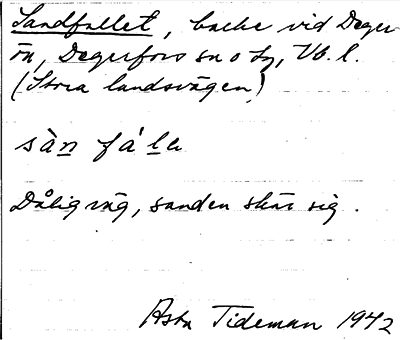 Sandfallet, backe vid Deger-
ön, Degerfors sn o hg, Vb. l.
(Stora landsvägen)
sàn fálɛ
Dålig väg, sanden skär sig.
Asta Tideman 1942